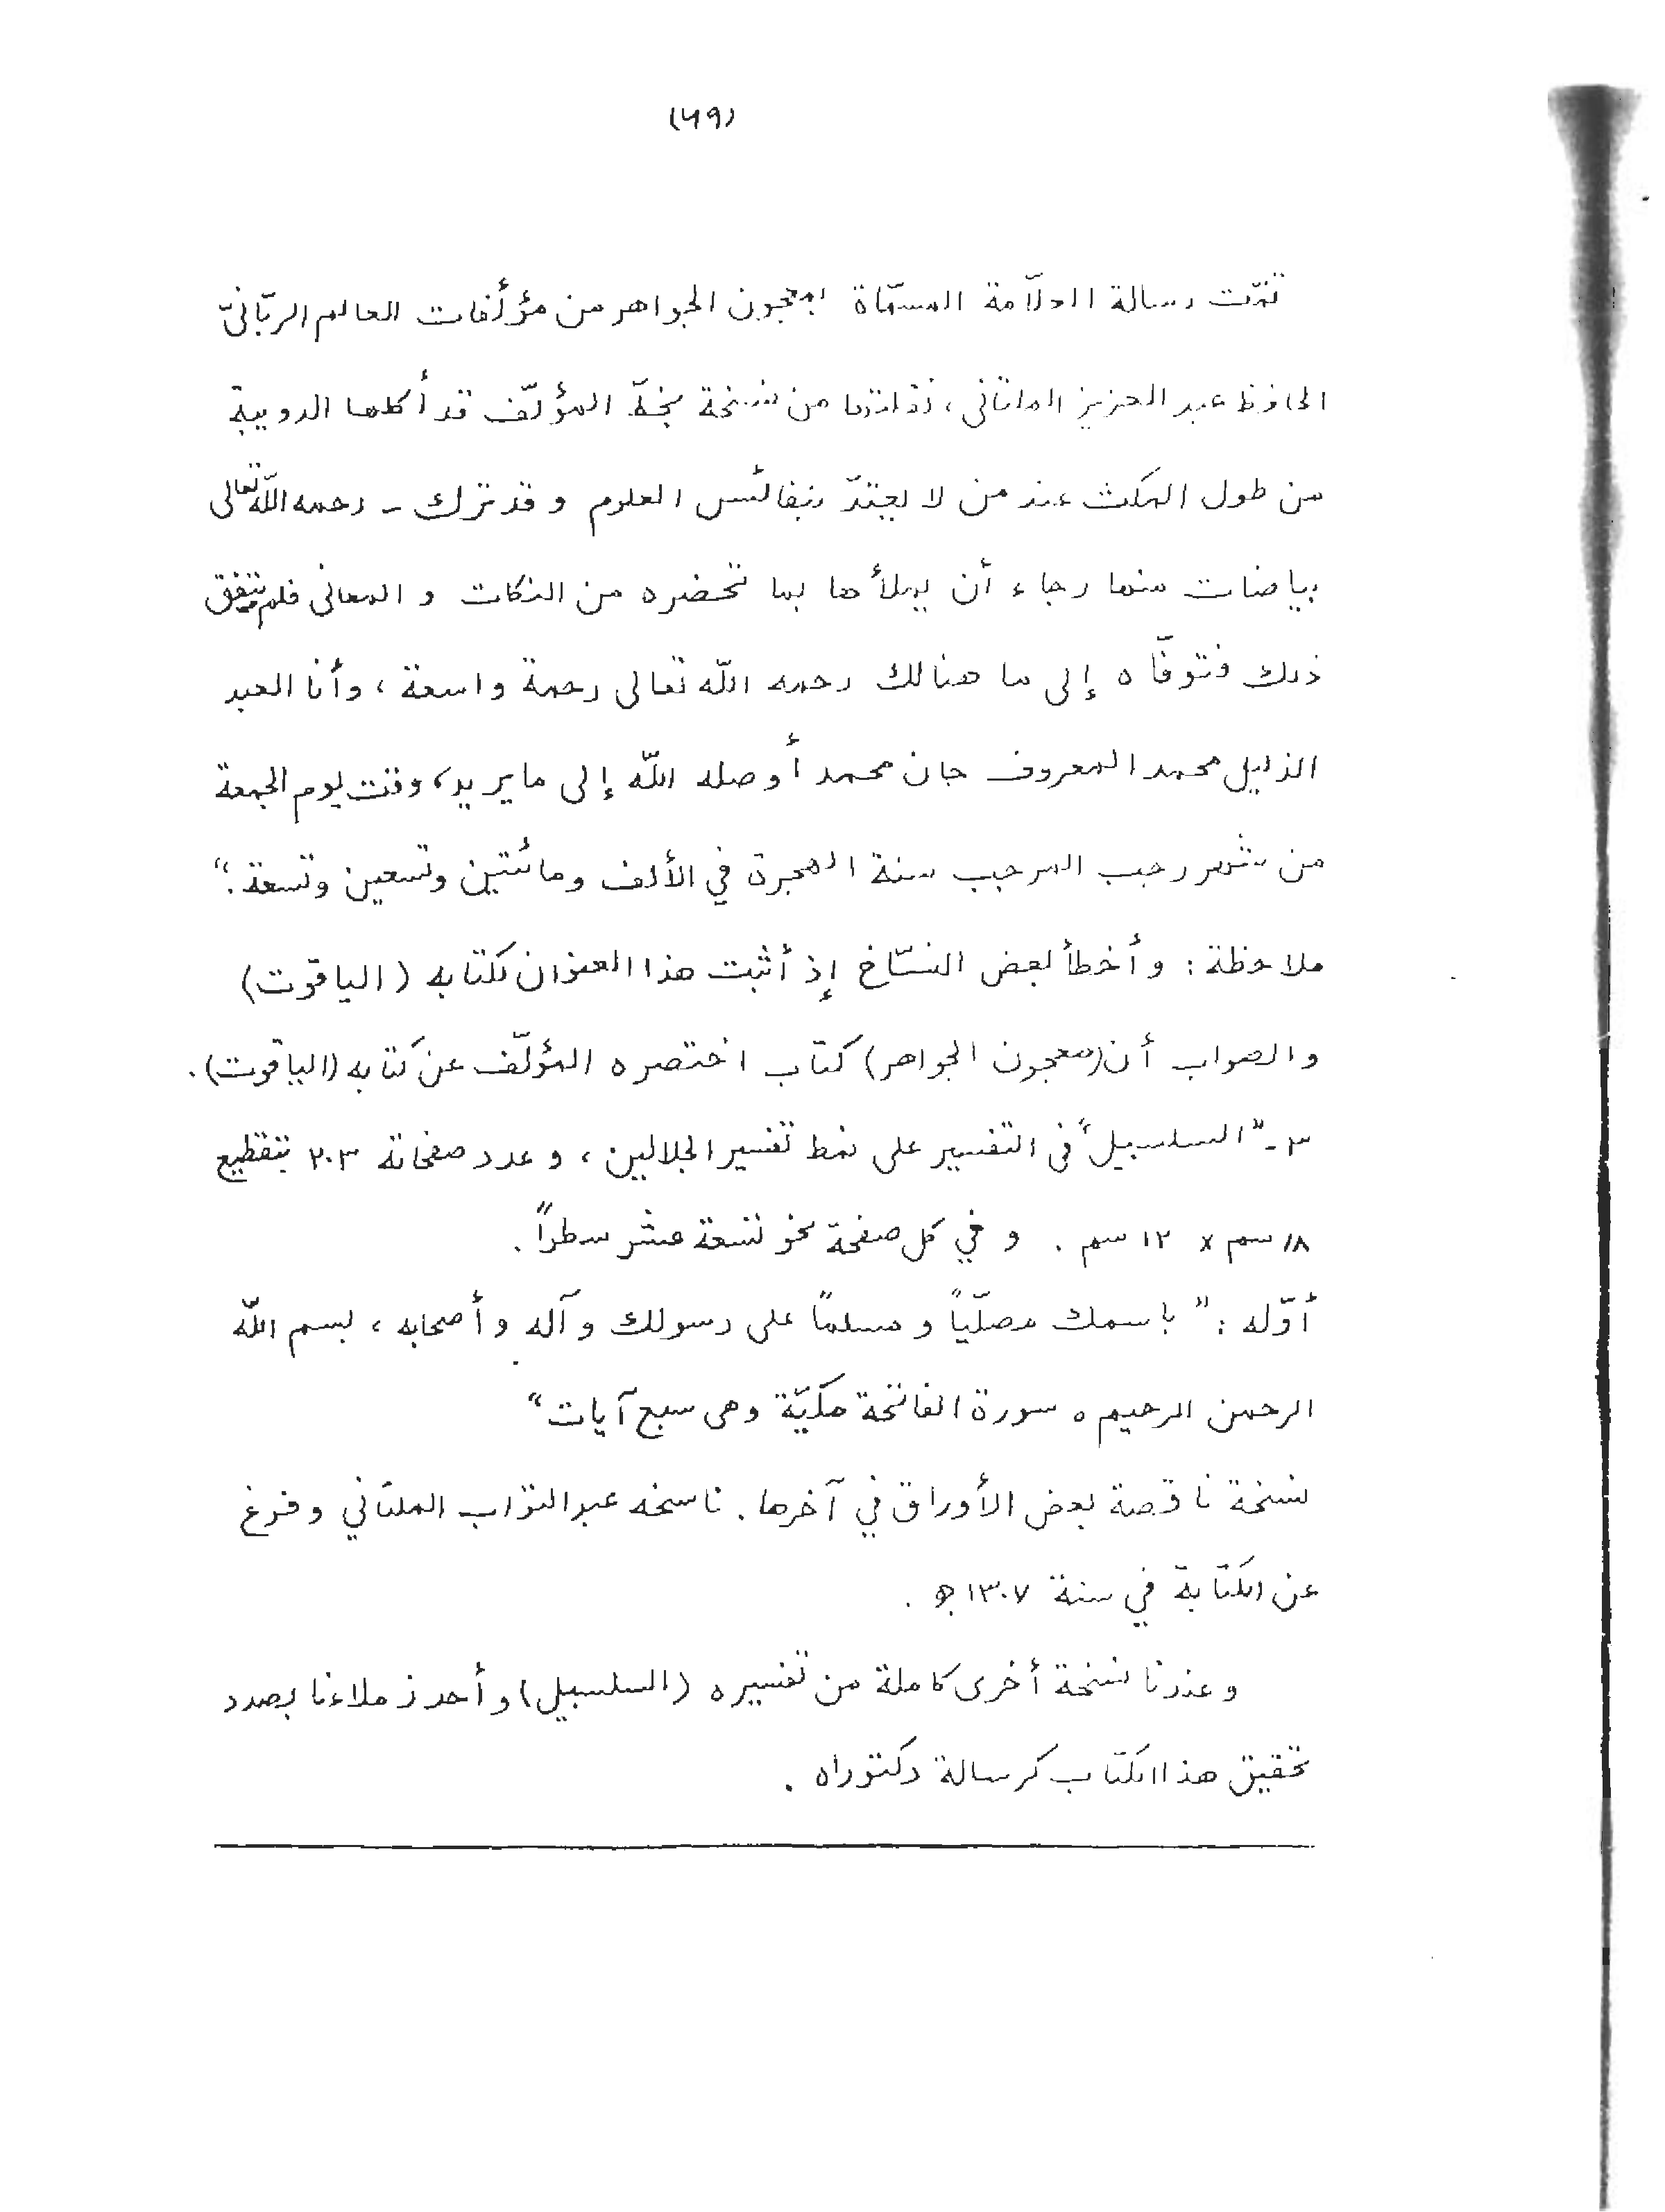 (٦٩)
تمّت رسالة العلاّمة المسمّاة بمعجون الجواهر من مؤلّفات العالم الربّانيّ
الحافظ عبد العزيز الملتاني، نقلتها من نسخة بخطّ المؤلّف قد أكلها الدويبة
من طول المكث عند من لا يعتدّ بنفائس العلوم وقد ترك - رحمه اللّه تعالى
بياضات منها رجاء أن يملأها بما تحضره من النكات و المعانى فلم يتفق
ذلك فتوفّاه إلى ما هنالك رحمه اللّه تعالى رحمة واسعة، وأنا العبد
الذليل محمد المعروف جان محمد أوصله اللّه إلى ما يريد، وقت يوم الجمعة
من شهر رجب المرجب سنة الهجرة في الألف ومائتين وتسعين وتسعة."
ملاحظة: وأخطأ بعض النسّاخ إذ أثبت هذا العنوان لكتابه (الياقوت)
والصواب أن (معجون الجواهر) كتاب اختصره المؤلّف عن كتابه (الياقوت).
٣ـ "السلسبيل" فى التفسير على نمط تفسير الجلالين، وعدد صفحاته ٢٠٣ بتقطيع
١٨ سم x ١٢ سم. وفي كل صفحة نحو تسعة عشر سطراً.
أوّله: "باسمك مصلّياً ومسلماً على رسولك وآله وأصحابه، بسم اللّه
الرحمن الرحيم ه سورة الفاتحة مكيّة وهى سبع آيات"
نسخة ناقصة بعض الأوراق في آخرها. ناسخه عبد التوّاب الملتاني وفرغ
عن الكتابة في سنة ١٣٠٧ ھ.
وعندنا نسخة أخرى كاملة من تفسيره (السلسبيل) وأحد زملاءنا بصدد
تحقيق هذا الكتاب كرسالة دكتوراه.